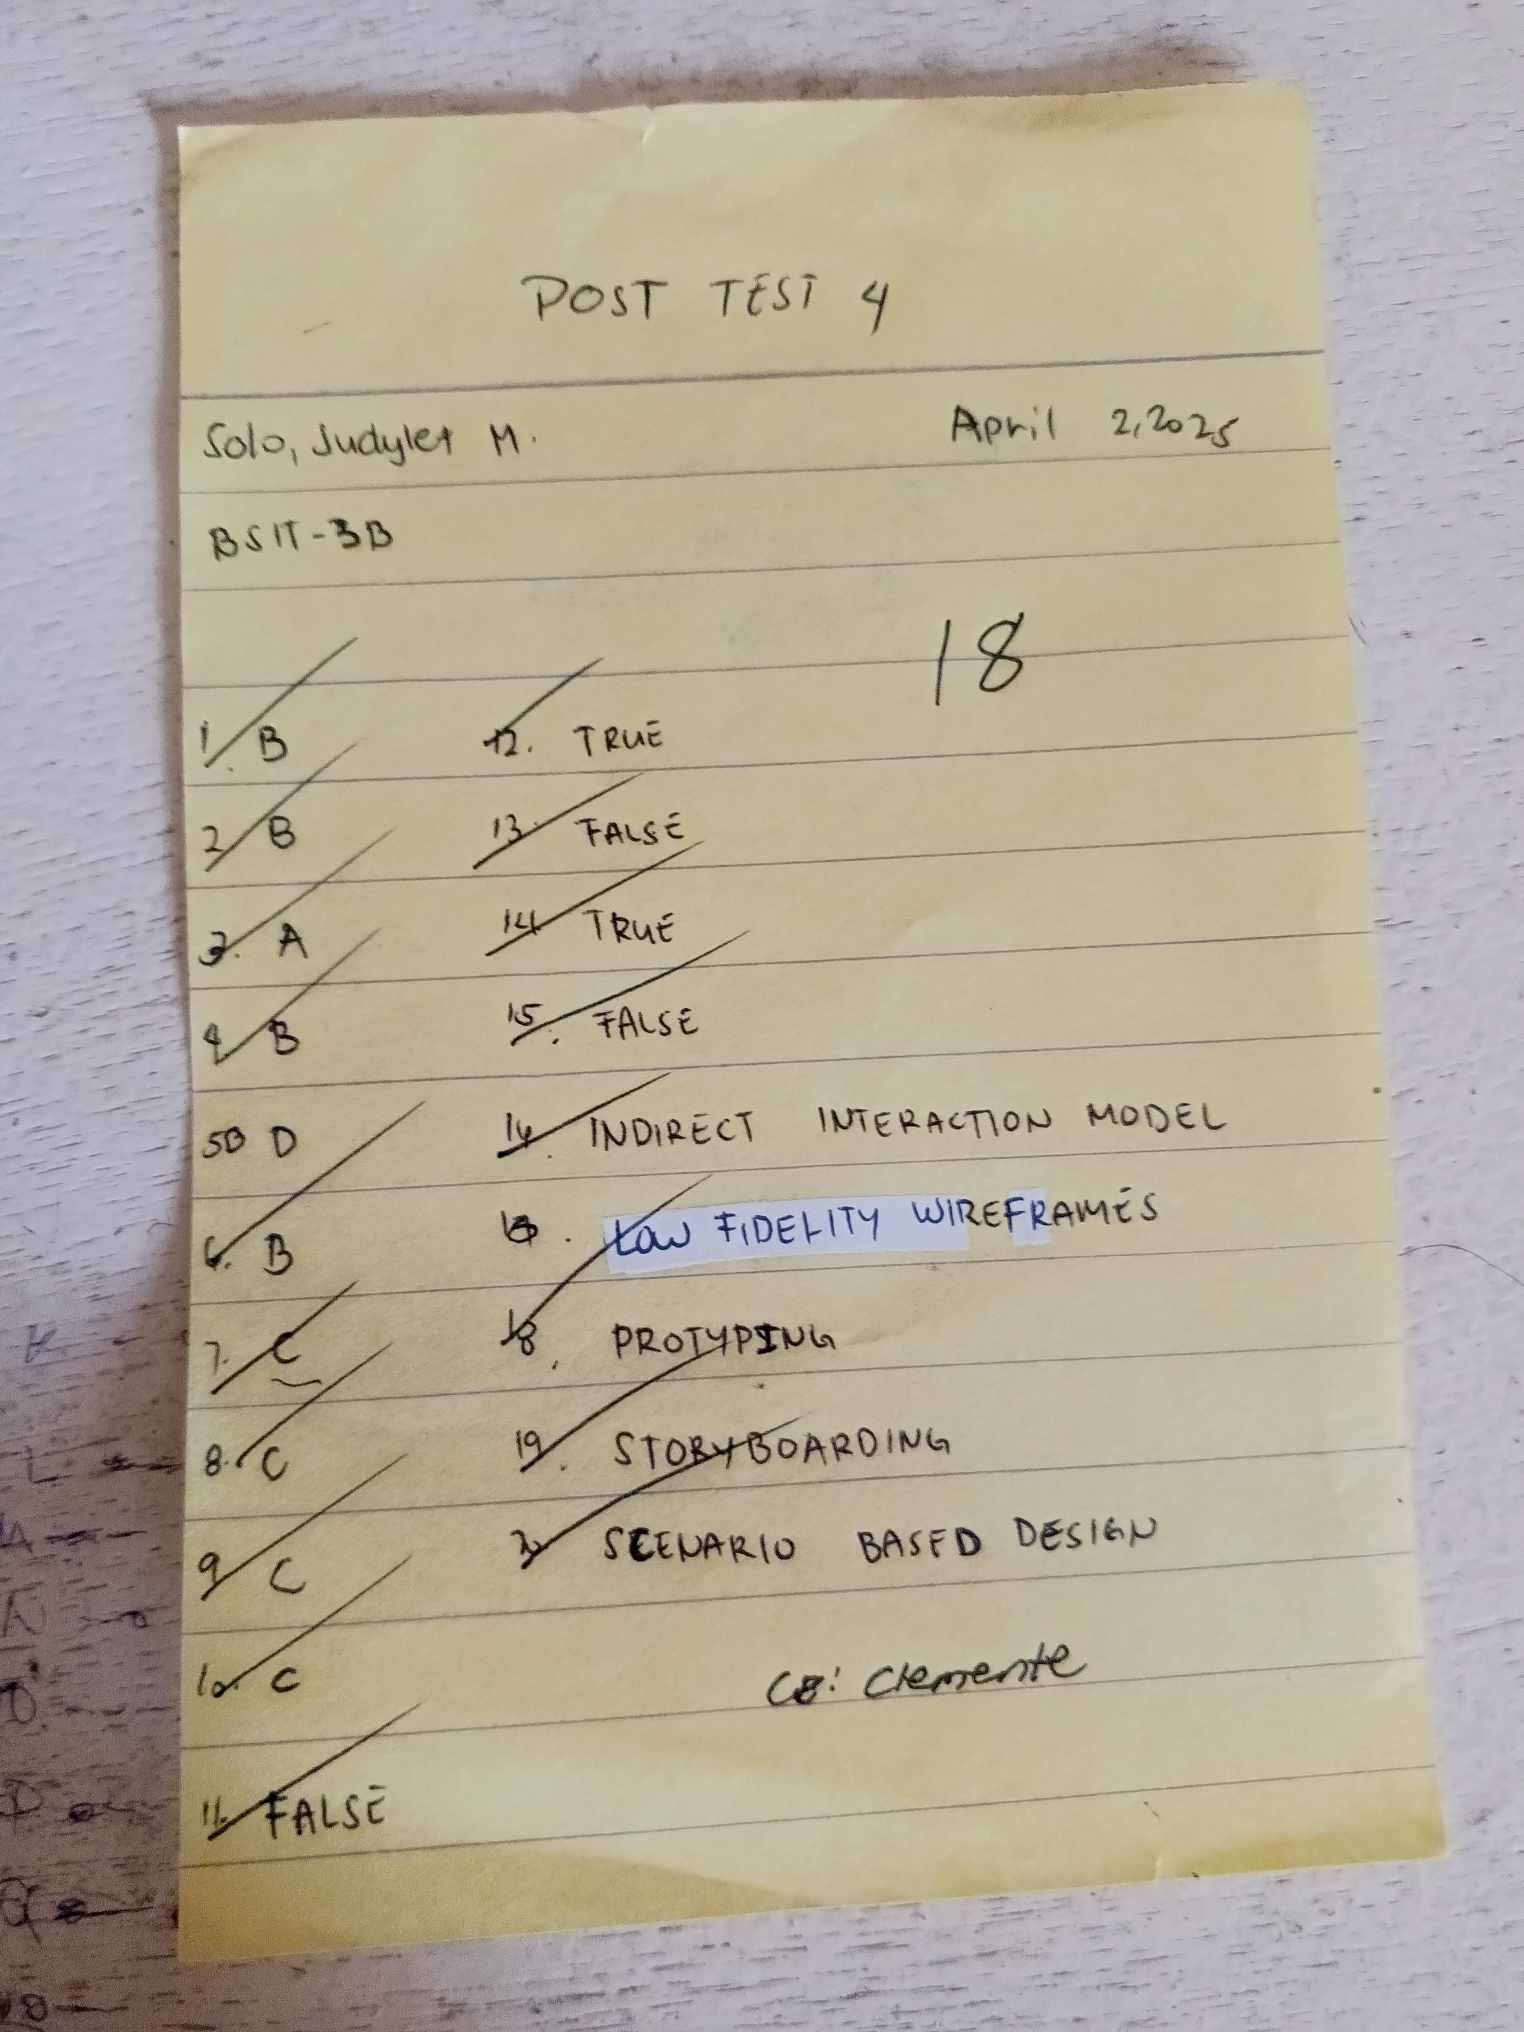 POST TEST 4
Solo, Judylet M. April 2, 2025
BSIT-3B
18
1. B
2. B
3. A
4. B
5. D
6. B
7. C
8. C
9. C
10. C
11. FALSE
12. TRUE
13. FALSE
14. TRUE
15. FALSE
16. INDIRECT INTERACTION MODEL
LOW FIDELITY WIREFRAMES
18. PROTYPING
19. STORYBOARDING
20 SCENARIO BASED DESIGN
CB: Clemente